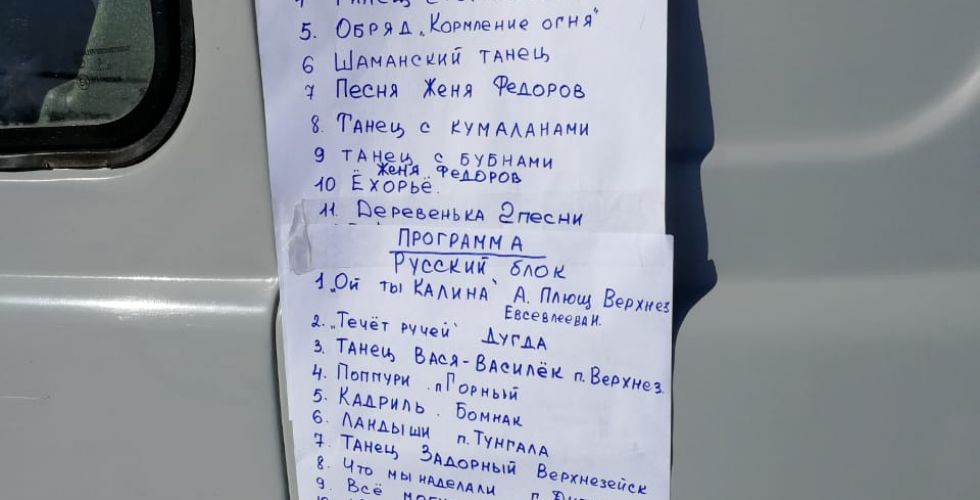 Танец
5. Обряд „Кормление огня"
6 Шаманский танец
7 Песня Женя Федоров
8. Танец с кумаланами
9 танец с бубнами
Женя Федоров
10 Ёхорьё.
11. Деревенька 2 песни
Программа
Русский блок
1. „Ой ты Калина" А. Плющ Верхнез
Евсевлеева И.
2. „Течёт ручей" Дугда
3. Танец Вася-Василёк п. Верхнез.
4. Поппури п Горный
5. Кадриль. Бомнак
6. Ландыши п. Тунгала
7. Танец Задорный Верхнезейск
8. Что мы наделали п.
9. Всё